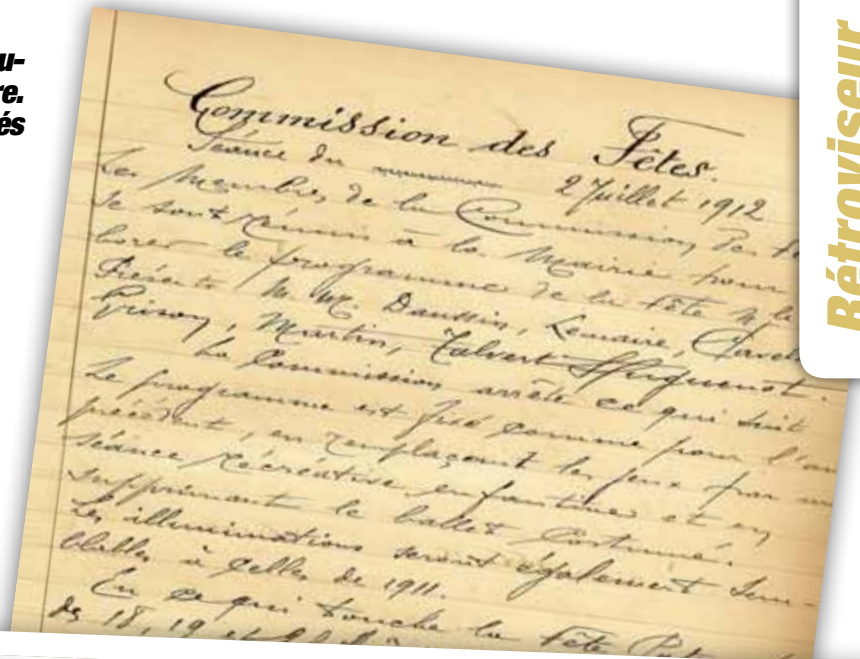 u-
re.
és
Rétroviseur
Commission des Fêtes.
Séance du 2 Juillet 1912
Les Membres de la Commission des
se sont réunis à la Mairie pour
borer le programme de la Fête
Présents M.M. Daussin, Lemaire,
Martin, Calvert
La Commission arrête ce qui suit
Le programme est fixé comme pour l'an
précédent, en remplaçant les jeux par une
séance récréative enfantine et en
supprimant le ballet costumé.
Les illuminations seront également sem-
blables à celles de 1911.
En ce qui touche la Fête
des 18, 19 et